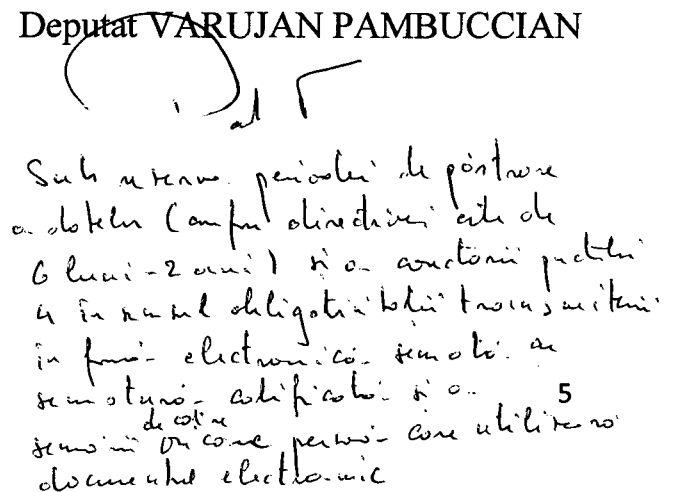 Deputat VARUJAN PAMBUCCIAN
Sub rezerva perioadei de păstrare
a datelor (conform directivei este de
6 luni - 2 ani) și a
4 în sensul obligativității transmiterii
în formă electronică semnată cu
semnătură calificată și a 5
semnării de către oricare persoană care utilizează
documentul electronic